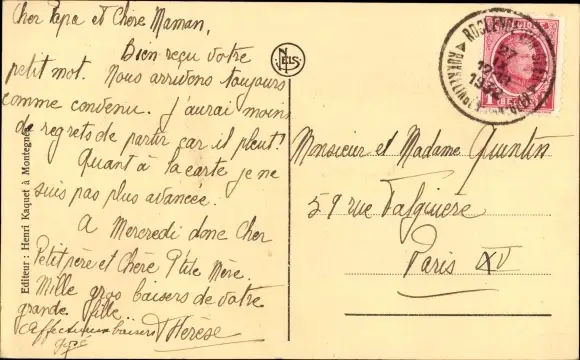 Cher Papa et Chère Maman,
Bien reçu votre
petit mot. Nous arrivons toujours
comme convenu. J'aurai moins
de regrets de partir car il pleut!
Quant à la carte je ne
suis pas plus avancée.
A Mercredi donc Cher
Petit père et Chère P'tite Mère.
Mille gros baisers de votre
grande fille
Affectueux baisers Thérèse
NELS
Editeur : Henri Kaquet à Montegnée
Monsieur et Madame Quintin
59 rue Falguière
Paris XV
27
1932